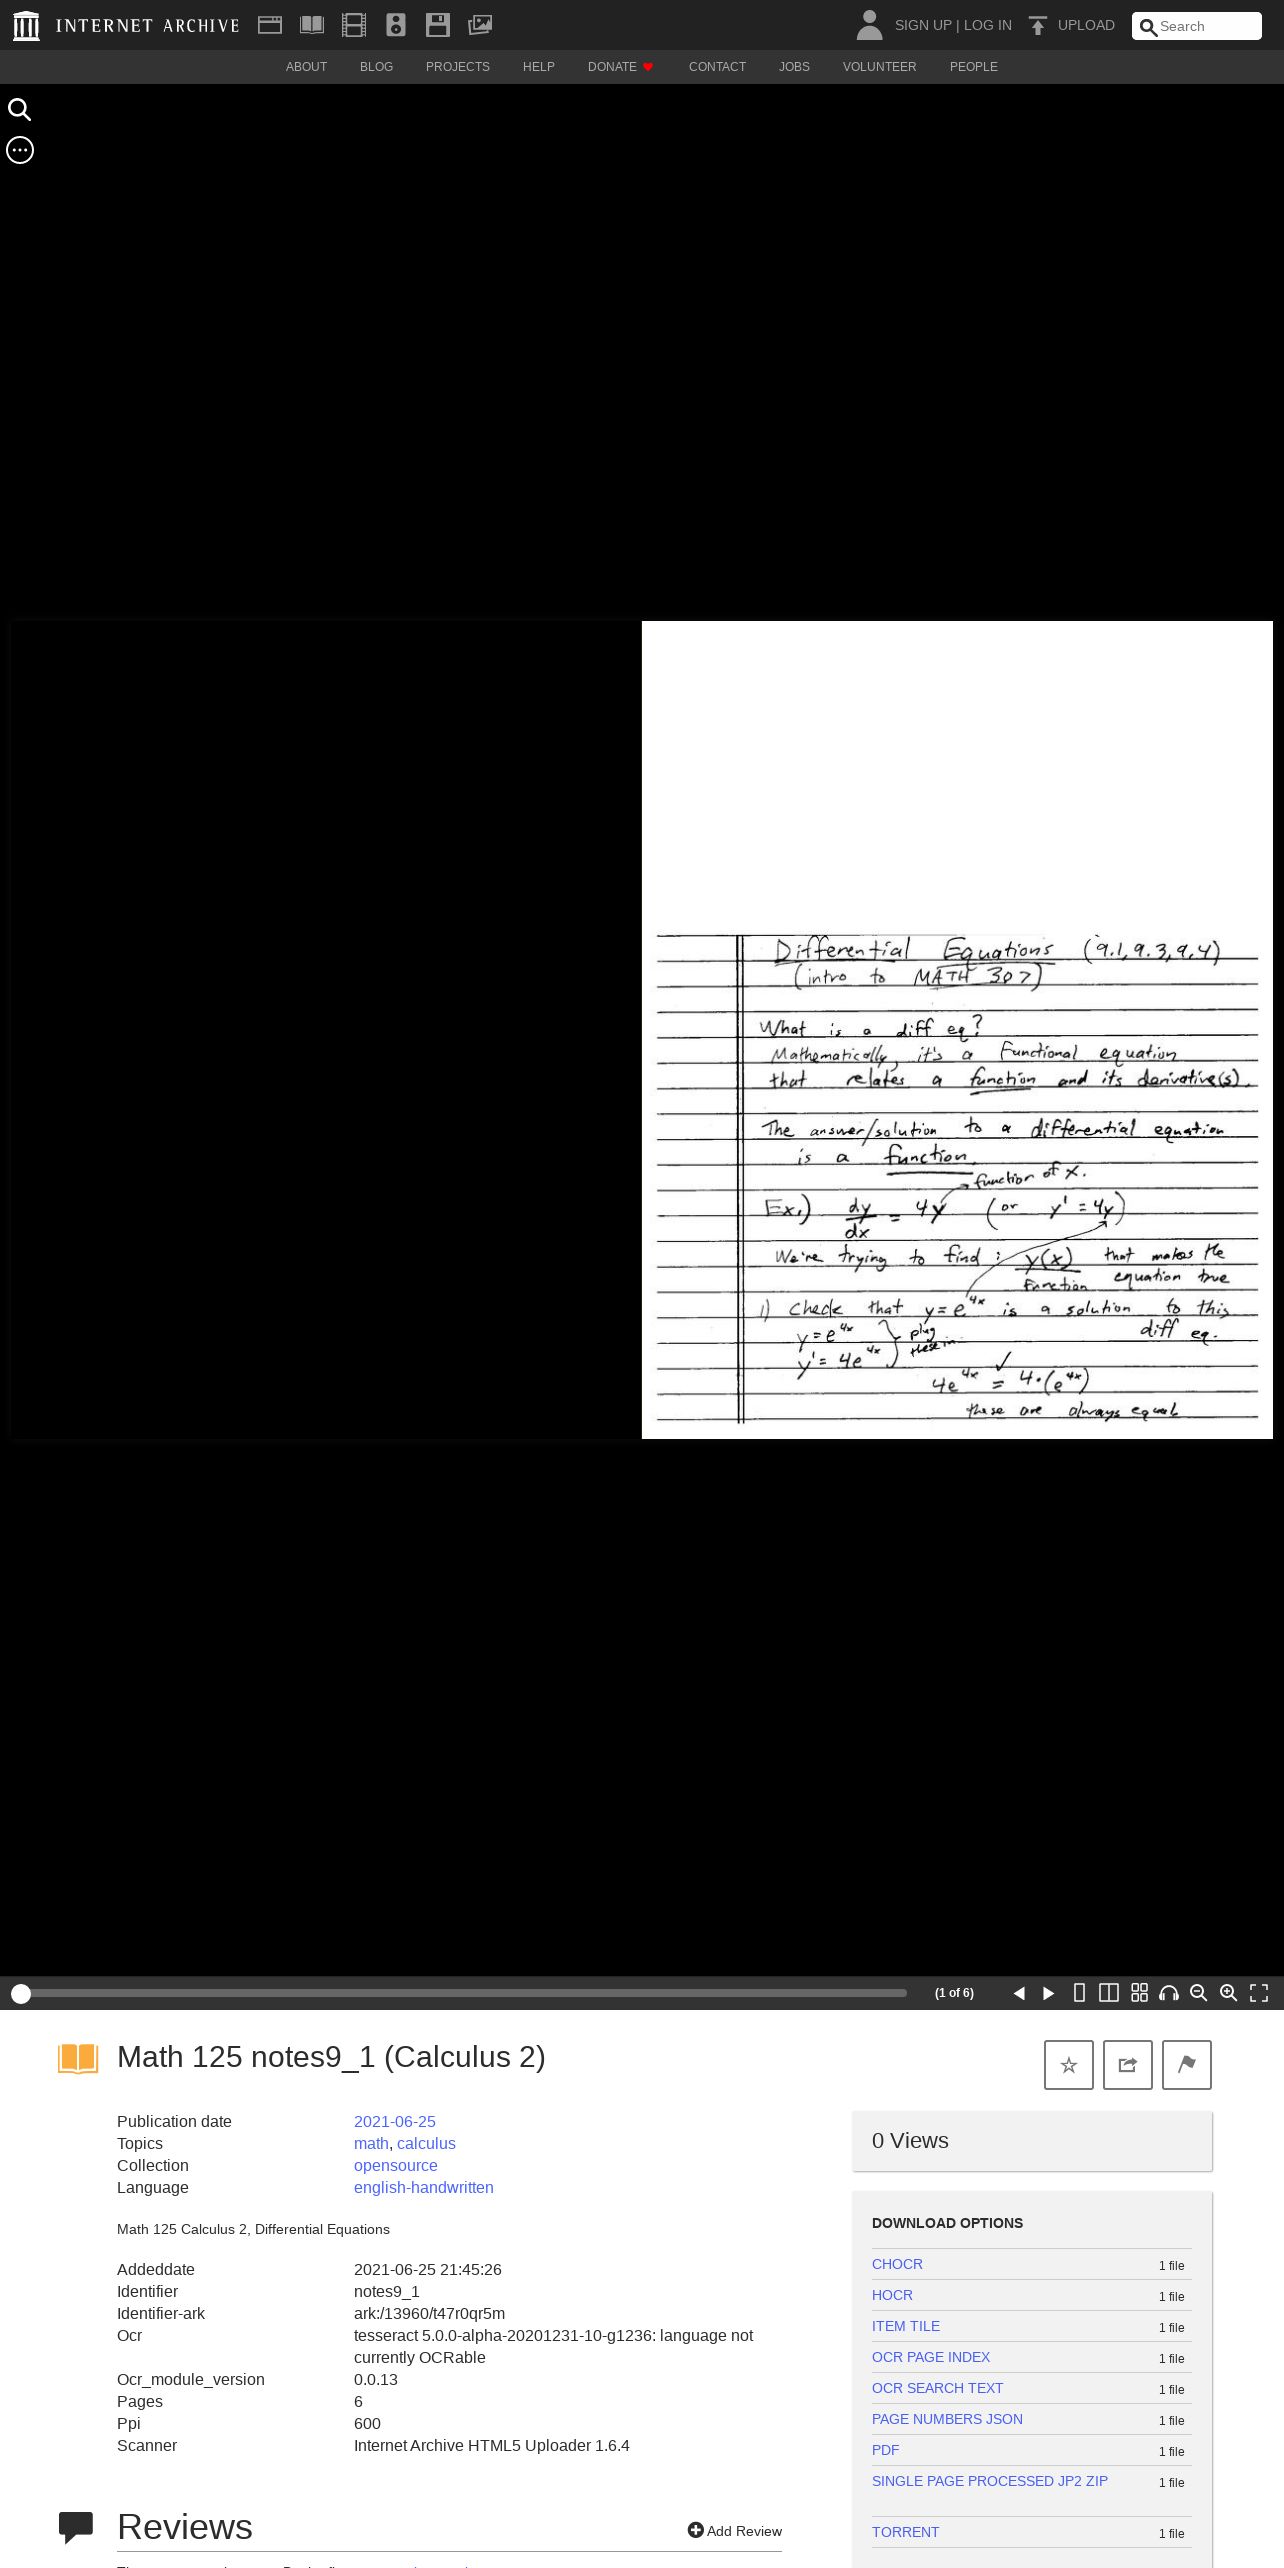 INTERNET ARCHIVE SIGN UP | LOG IN UPLOAD Search
ABOUT BLOG PROJECTS HELP DONATE CONTACT JOBS VOLUNTEER PEOPLE
Differential Equations (9.1, 9.3, 9.4)
(intro to MATH 307)
What is a diff eq?
Mathematically, it's a Functional equation
that relates a function and its derivative(s).
The answer/solution to a differential equation
is a function.
function of x.
Ex.) dy/dx = 4y (or y' = 4y)
We're trying to find: y(x) that makes the
Function equation true
1) Check that y = e^4x is a solution to this
diff eq.
y = e^4x plug
y' = 4e^4x these in
4e^4x = 4·(e^4x) ✓
these are always equal
(1 of 6)
Math 125 notes9_1 (Calculus 2)
Publication date 2021-06-25
Topics math, calculus
Collection opensource
Language english-handwritten
Math 125 Calculus 2, Differential Equations
Addeddate 2021-06-25 21:45:26
Identifier notes9_1
Identifier-ark ark:/13960/t47r0qr5m
Ocr tesseract 5.0.0-alpha-20201231-10-g1236: language not
currently OCRable
Ocr_module_version 0.0.13
Pages 6
Ppi 600
Scanner Internet Archive HTML5 Uploader 1.6.4
Reviews
Add Review
0 Views
DOWNLOAD OPTIONS
CHOCR 1 file
HOCR 1 file
ITEM TILE 1 file
OCR PAGE INDEX 1 file
OCR SEARCH TEXT 1 file
PAGE NUMBERS JSON 1 file
PDF 1 file
SINGLE PAGE PROCESSED JP2 ZIP 1 file
TORRENT 1 file